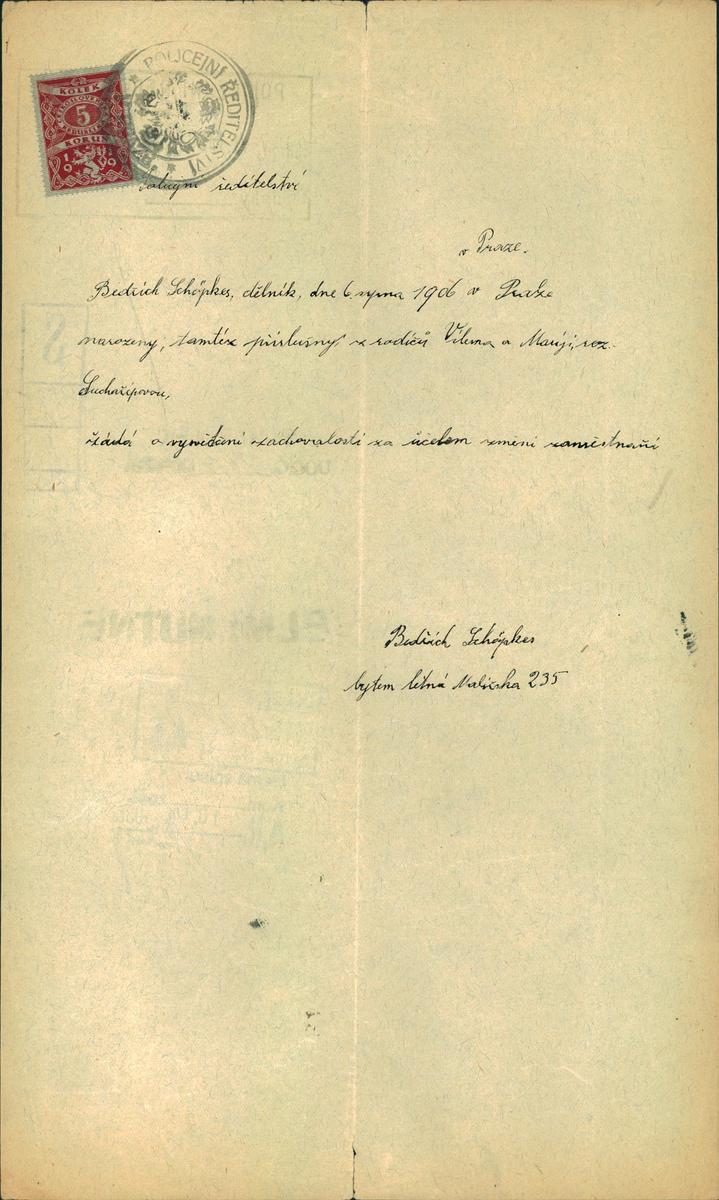 KOLEK
5
KORUN
1919
POLICEJNÍ ŘEDITELSTVÍ
ředitelství
v Praze.
Bedřich Schöpkes, dělník, dne 6. srpna 1906 v Praze
narozený, tamtéž příslušný z rodičů Viléma a Marije, roz.
Suchařípovou,
žádá o vysvětčení zachovalosti za účelem změni zaměstnaňí
Bedřich Schöpkes
bytem letná Malířska 235